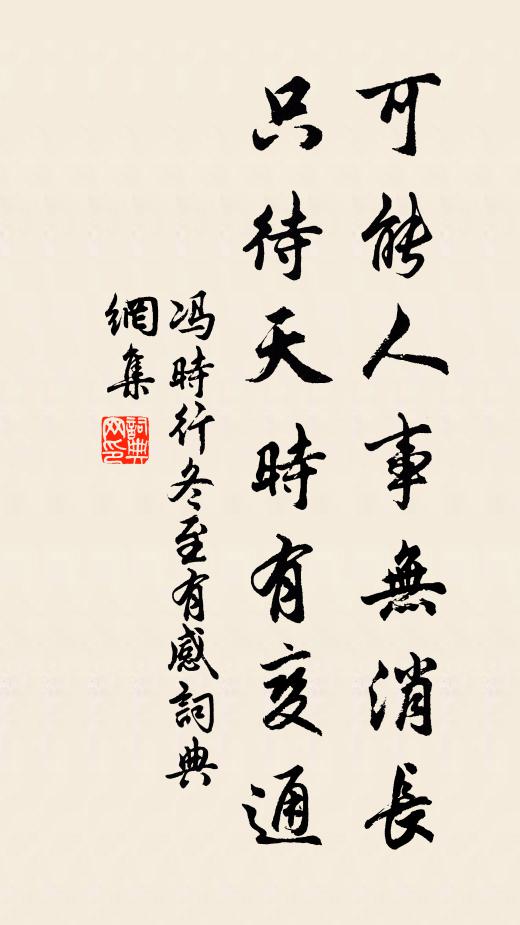 可能人事無消長
只待天時有变通
冯時行冬至有感詞典
網集
詞典
网印